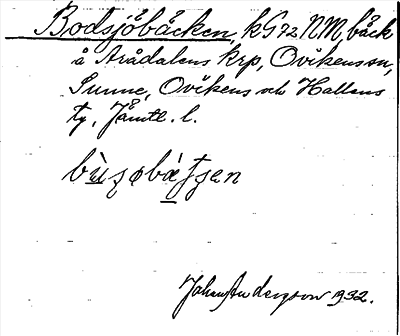 Bodsjöbäcken, kG72NM, bäck
å Arådalens krp, Ovikens sn,
Sunne, Ovikens och Hallens
tg, Jämtl. l.
bùʒøbætʃen
Johan Anderson 1932.